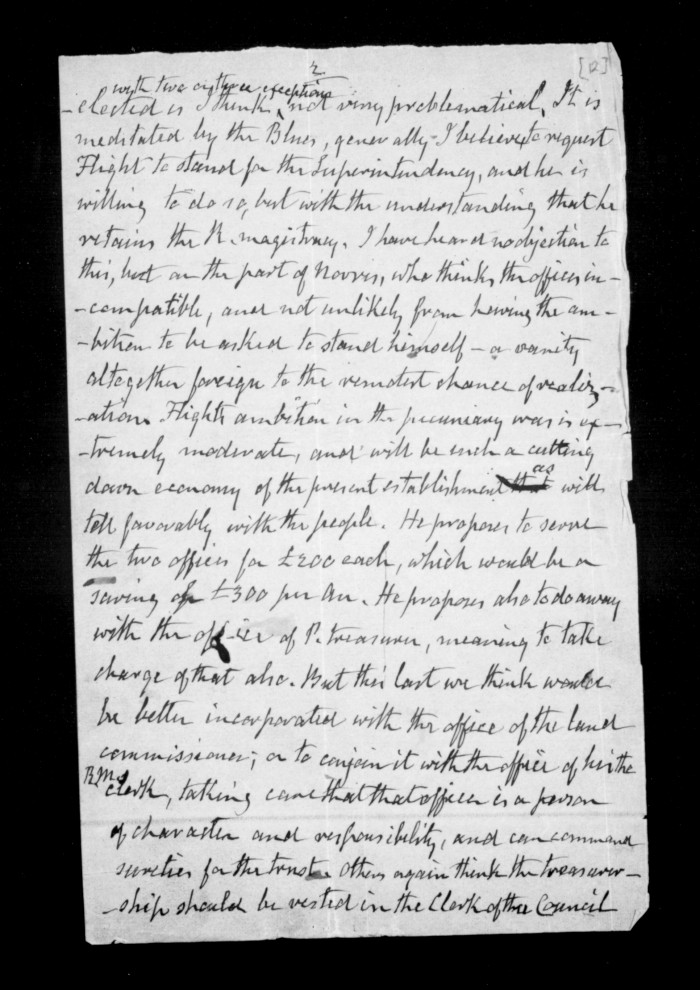 2
[2]
with two or three exceptions
-elected is I think, not very problematical. It is
meditated by the Blues, generally I believe to request
Flight to stand for the Superintendency, and he is
willing to do so, but with the understanding that he
retains the R. magistracy. I have heard no objection to
this, but on the part of Norris, who thinks the offices in-
-compatible, and not unlikely from having the am-
-bition to be asked to stand himself - a vanity
altogether foreign to the remotest chance of realiz-
-ation. Flights ambition in the pecuniary was is ex-
-tremely moderate, and will be such a cutting
down economy of the present establishment that as will
tell favorably with the people. He proposes to serve
the two offices for £200 each, which would be a
saving of £300 per An. He proposes also to do away
with the officer of P. treasurer, meaning to take
charge of that also. But this last we think would
be better incorporated with the office of the land
commissioner; or to conjoin it with the office of the
R.M.s
clerk, taking care that that officer is a person
of character and responsibility, and can command
sureties for the trust. Others again think the treasurer-
-ship should be vested in the Clerk of the Council